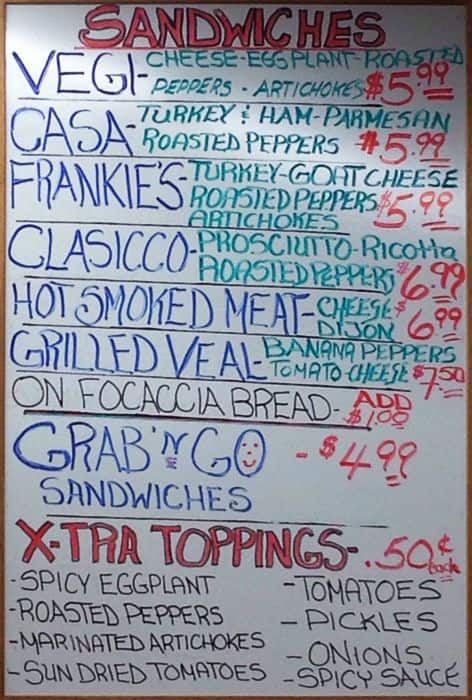 SANDWICHES
VEGI- CHEESE-EGGPLANT-ROASTED
PEPPERS - ARTICHOKES $5.99
CASA- TURKEY & HAM-PARMESAN
ROASTED PEPPERS $5.99
FRANKIE'S- TURKEY-GOAT CHEESE
ROASTED PEPPERS $5.99
ARTICHOKES
CLASICCO- PROSCIUTTO-Ricotta
ROASTED PEPPERS $6.99
HOT SMOKED MEAT- CHEESE
DIJON $6.99
GRILLED VEAL- BANANA PEPPERS
TOMATO-CHEESE $7.50
ON FOCACCIA BREAD- ADD
$1.00
GRAB 'N GO - $4.99
SANDWICHES
X-TRA TOPPINGS- .50¢
each
-SPICY EGGPLANT
-ROASTED PEPPERS
-MARINATED ARTICHOKES
-SUN DRIED TOMATOES
-TOMATOES
- PICKLES
- ONIONS
-SPICY SAUCE